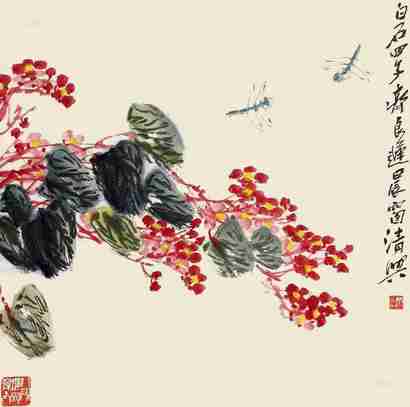 白石四子齊良遲晨窗清興